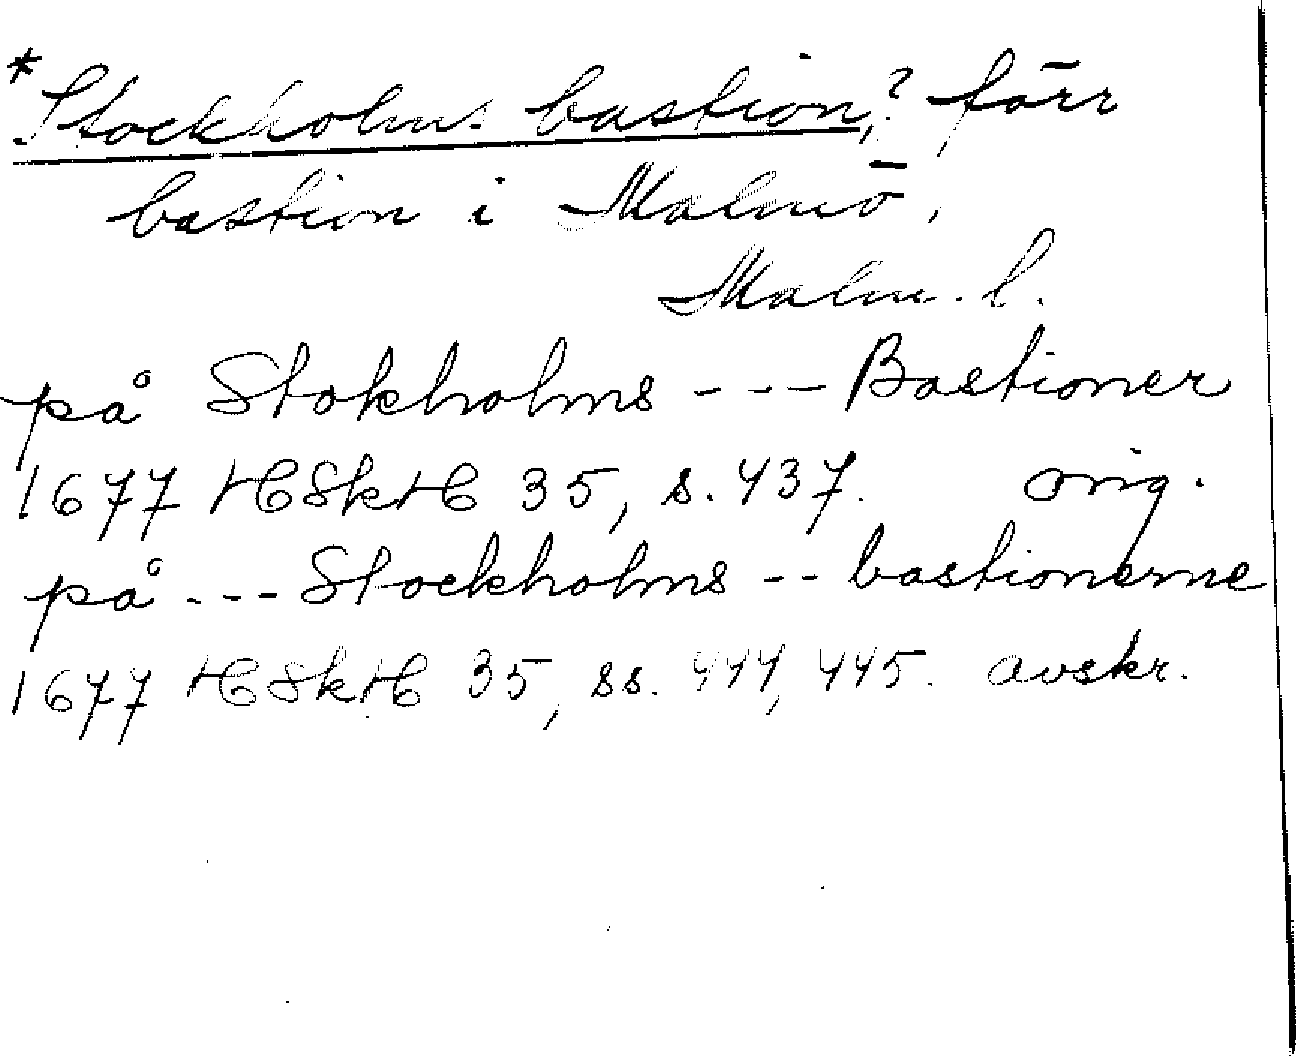 *Stockholms bastion,? förr
bastion i Malmö,
Malm. l.
på Stokholms --- Bastioner
1677 HSkH 35, s. 437. orig.
på --- Stockholms -- bastionerne
1677 HSkH 35, ss. 444, 445. avskr.